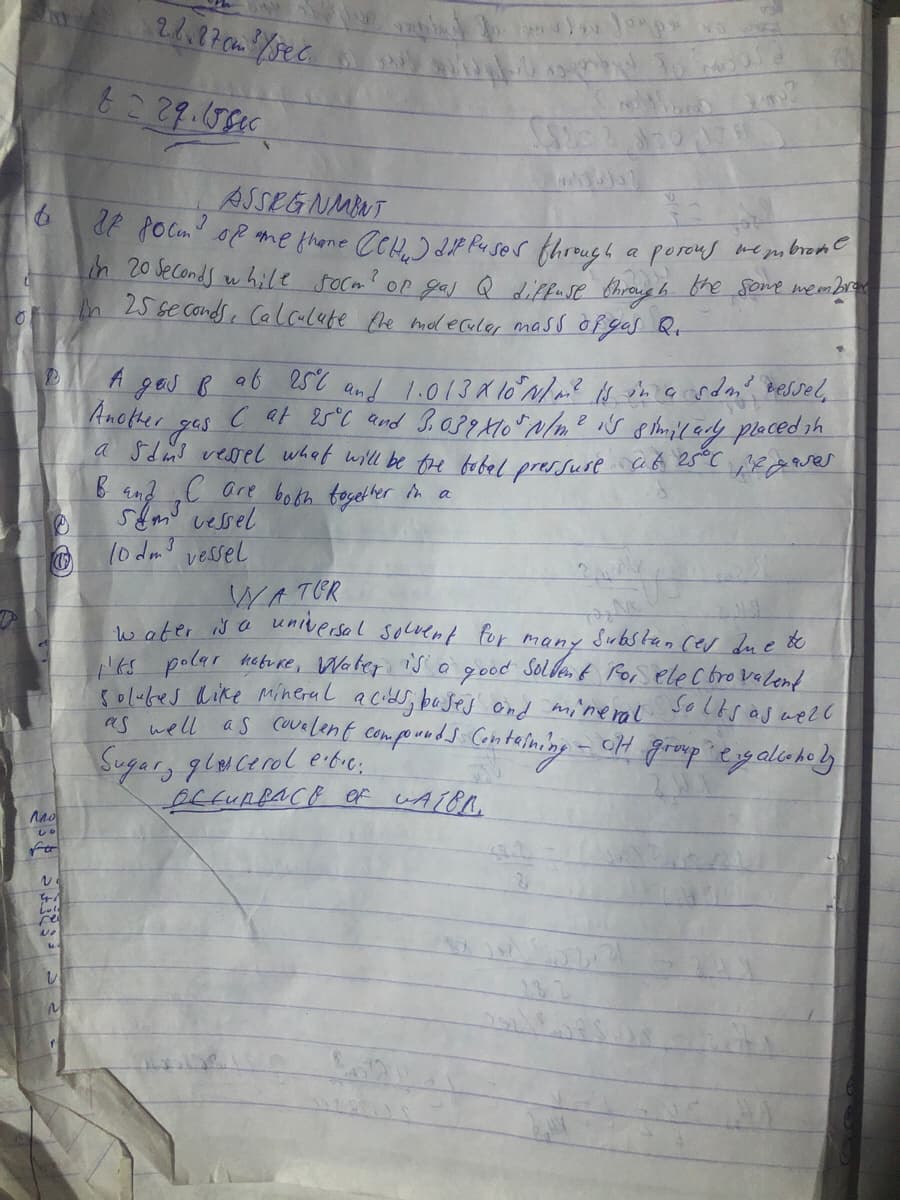 21.87cm³/sec.
t = 29.15sec
ASSIGNMENT
If 80cm³ of methane (CH₄) diffuses through a porous membrane
in 20 seconds while 50cm³ of gas Q diffuse through the same membrane
in 25 seconds. Calculate the molecular mass of gas Q.
A gas B at 25°C and 1.013X10⁵N/m² is in a 5dm³ vessel.
Another gas C at 25°C and 3.039X10⁵N/m² is similarly placed in
a 5dm³ vessel what will be the total pressure at 25°C, if gases
B and C are both together in a
5dm³ vessel
10dm³ vessel
WATER
water is a universal solvent for many substances due to
its polar nature, Water is a good solvent for electrovalent
solutes like mineral acids, bases and mineral salts as well
as well as covalent compounds containing -OH group e.g alcohols
Sugar, glycerol e.t.c.
OCCURENCE OF WATER.